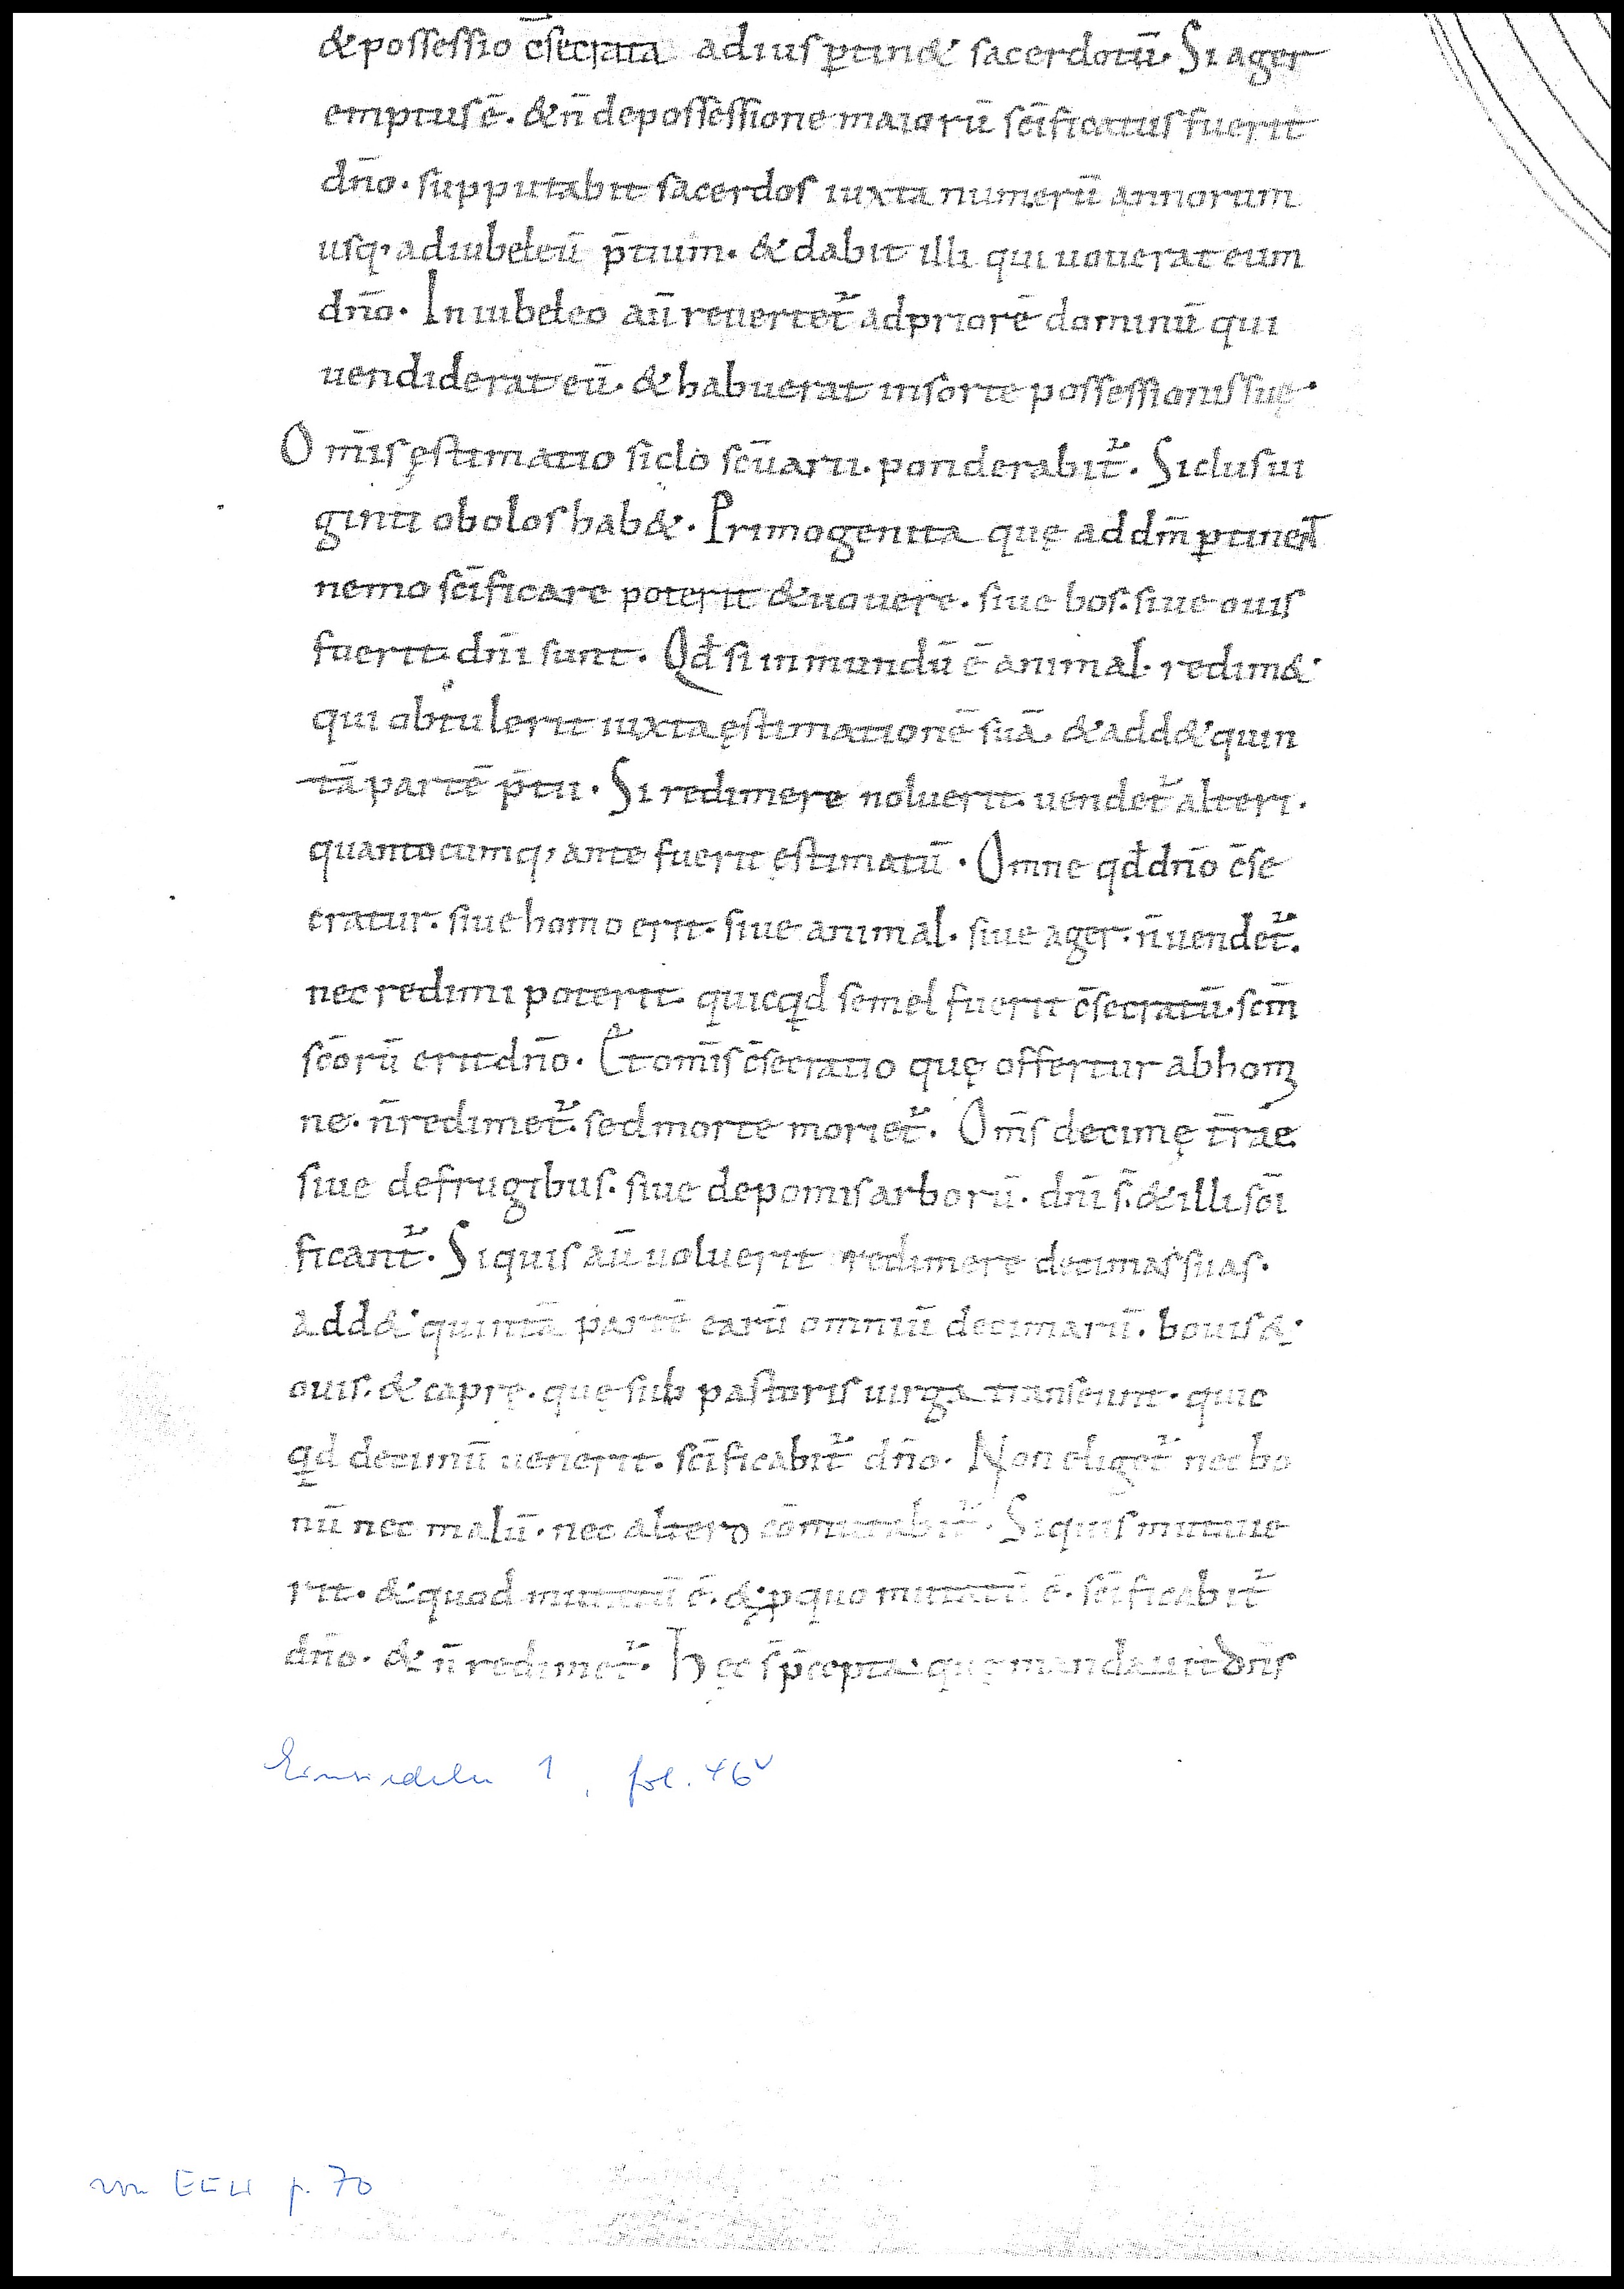 &possessio c̄secrata adius ꝑtin& sacerdotū. Si ager
emptus ē. &n̄ depossessione maiorū sc̄ificatus fuerit
dn̄o. supputabit sacerdos iuxta numerū annorum
usq; adiubeleū p̄tium. & dabit illi qui uouerat eum
dn̄o. In iubeleo aū reuertet᷑ adpriorē dominū qui
uendiderat eū. & habuerat insorte possessionis suę.
Om̄is ęstimatio siclo sc̄uarii. ponderabit᷑. Siclus ui
ginti obolos hab&. Primogenita quę ad dn̄m ꝑtinent
nemo sc̄ificare poterit &uouere. siue bos. siue ouis
fuerit. dn̄i sunt. Qd̄ si inmundū ē animal. redim&
qui obtulerit iuxta ęstimationē suā. &add& quin
tā partē p̄tii. Si redimere noluerit. uendet᷑ alteri.
quantocumq; ante fuerit ęstimatū. Omne qd̄ dn̄o c̄se
cratur. siue homo erit. siue animal. siue ager. n̄ uendet᷑.
nec redimi poterit. quicqd semel fuerit c̄secratū. scm̄
sc̄orū erit dn̄o. Et om̄is c̄secratio quę offertur abhomi
ne. n̄ redimet᷑. sed morte moriet᷑. Om̄s decimę t̄rae
siue defrugibus. siue depomis arborū. dn̄i s̄. & illi sc̄i
ficant᷑. Siquis aū uoluerit redimere decimas suas.
add& quintā partē earū omniū decimarū. bouis &
ouis. & caprę. quę sub pastoris uirga transeunt. quic
qd decimū uenerit. sc̄ificabit᷑ dn̄o. Non eliget᷑ nec bo
nū nec malū. nec altero cōmutabit᷑. Siquis mutaue
rit. & quod mutatū ē. & ꝓquo mutatū ē. sc̄ificabit᷑
dn̄o. & n̄ redimet᷑. Hęc s̄ p̄cepta quę mandauit dn̄s
Einsiedeln 1, fol. 46v
p. 70